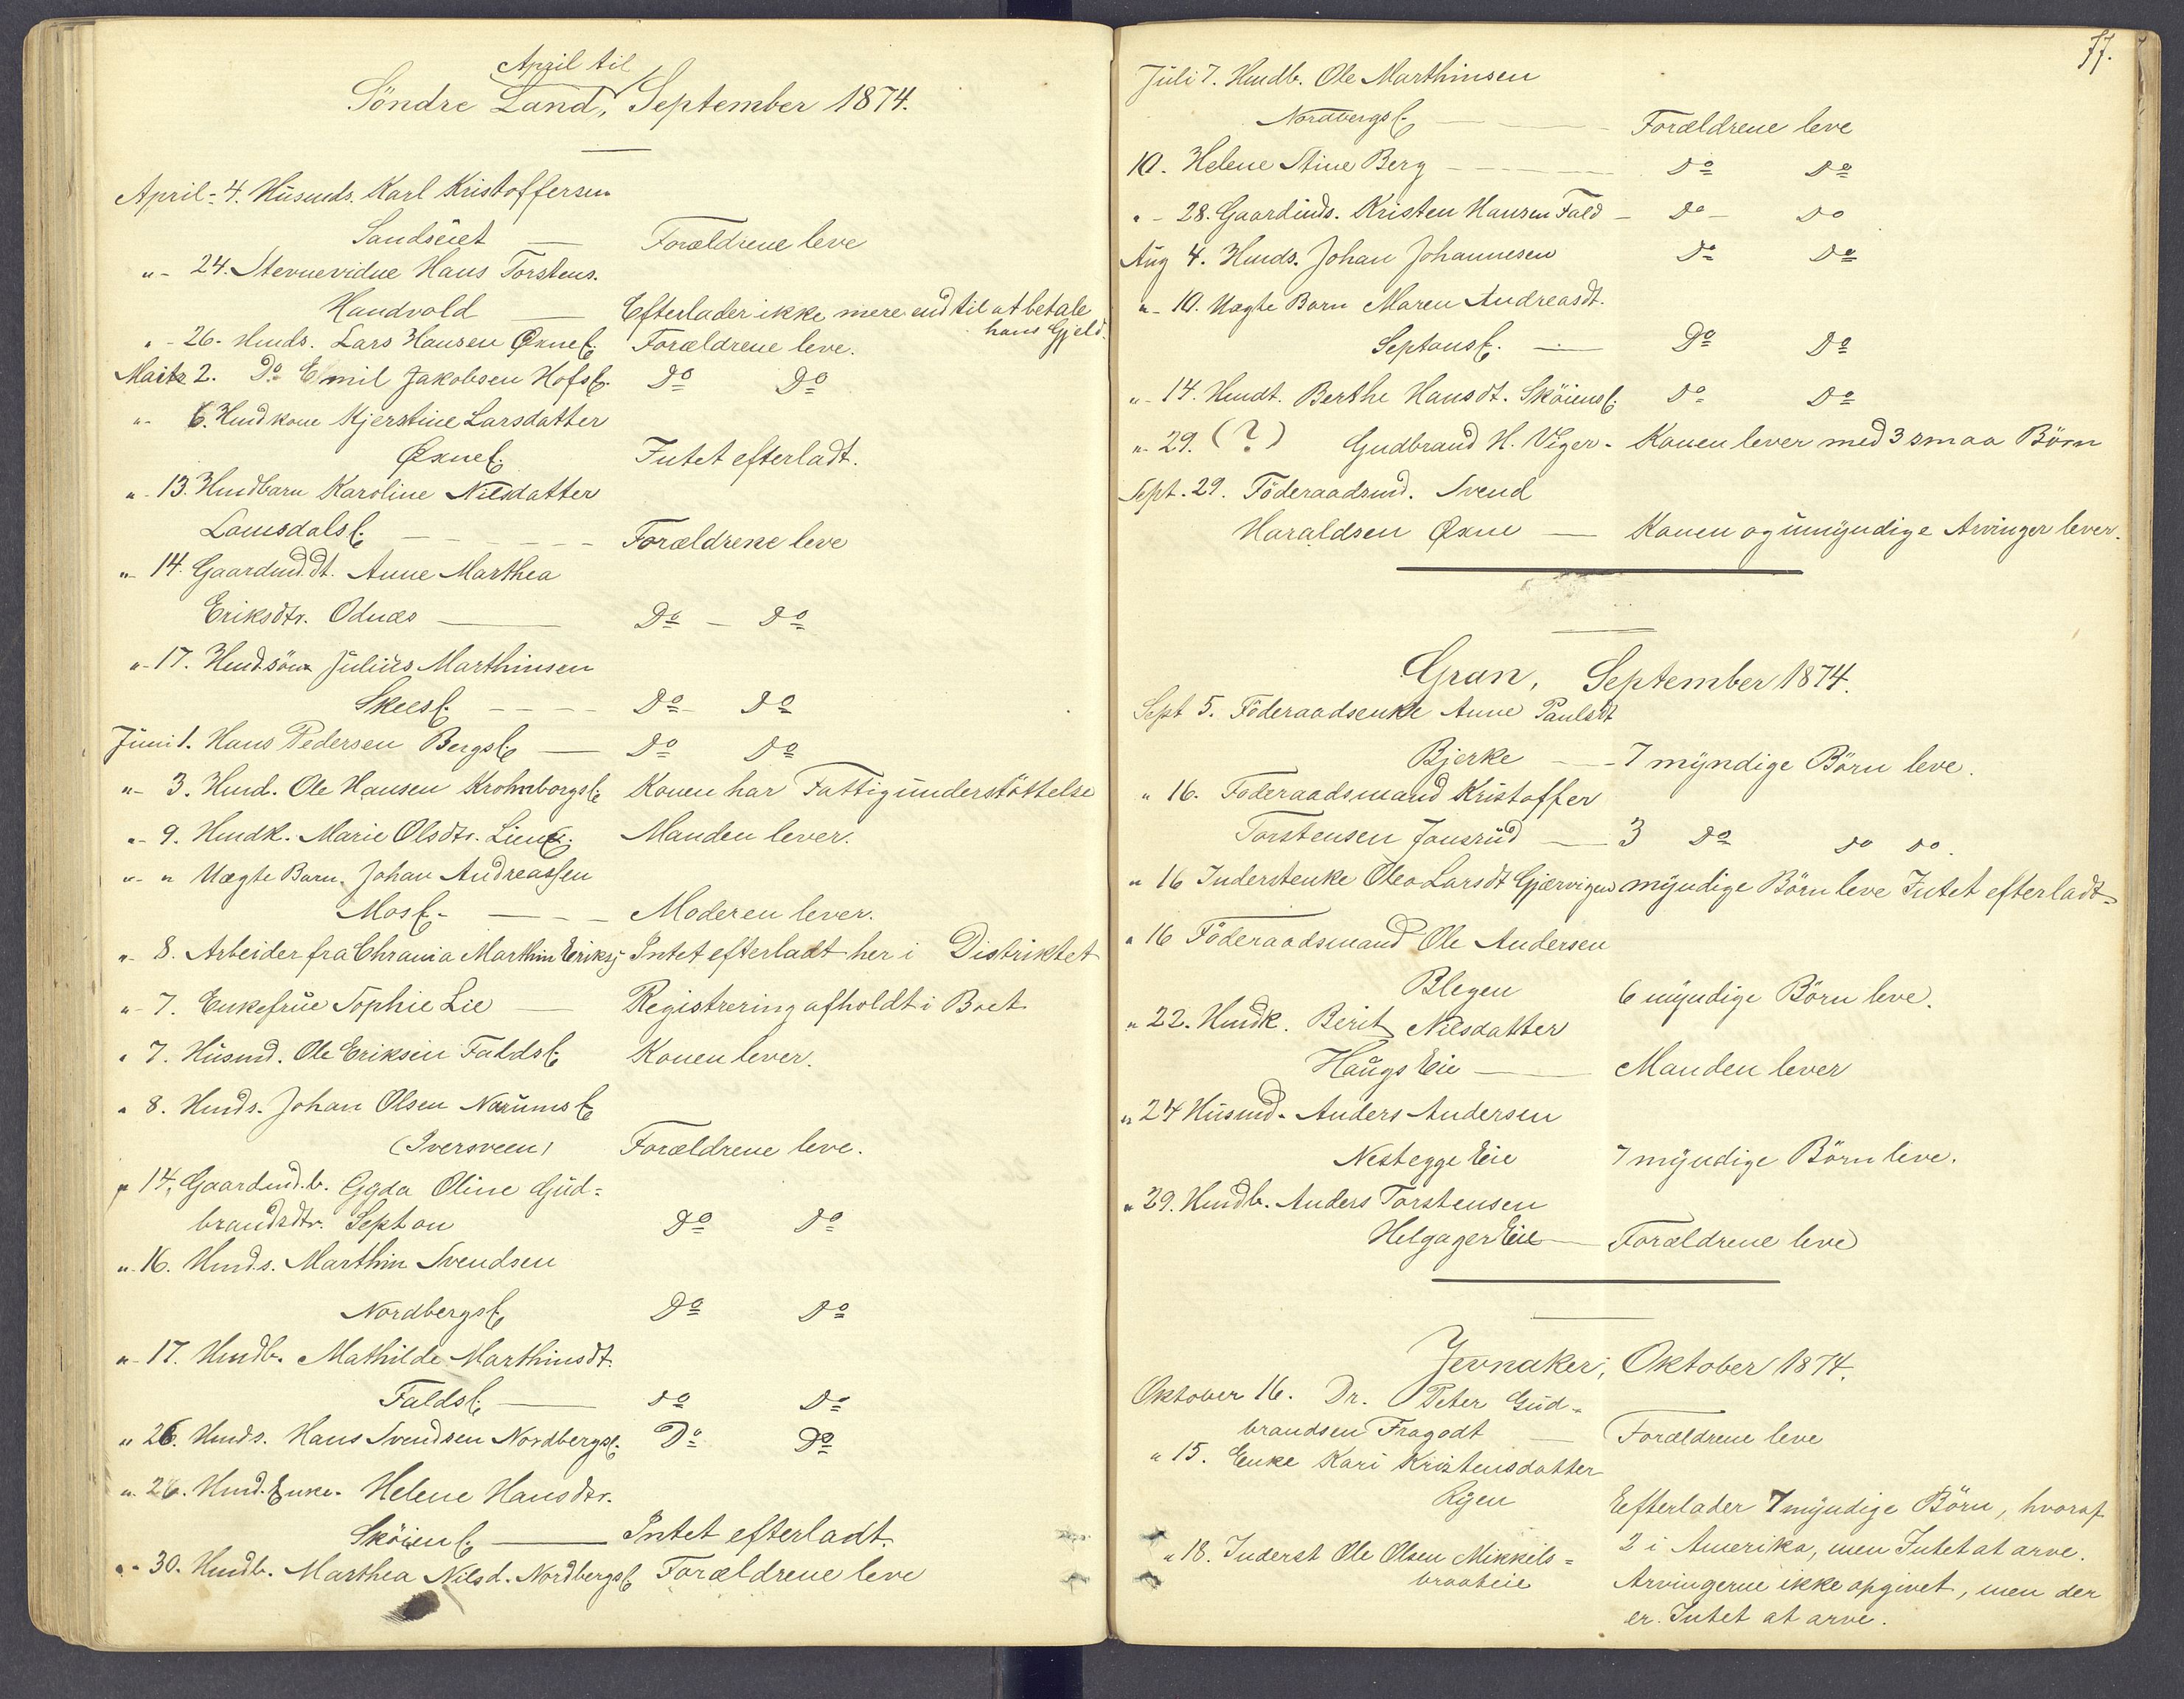 April til
Söndre Land, September 1874.
April - 4. Husmds. Karl Kristoffersen
Sandseiet — Forældrene leve
" - 24. Stevnevidne Hans Torstens.
Handvold — Efterlader ikke mere end til at betale
hans Gjeld.
" - 26. Hmds. Lars Hansen Øxne E. Forældrene leve.
Mai 2. Do Emil Jakobsen Hofs E. Do Do
" - 6. Hmdkone Kjerstine Larsdatter
Øxne E. Intet efterladt.
" - 13. Hmdbarn Karoline Nilsdatter
Lomsdals E. — Forældrene leve
" - 14. Gaardmd.dt. Anne Marthea
Eriksdtr. Odnæs — Do — Do
" - 17. Hmd.sön Julius Marthinsen
Skees E. — Do - Do
Juni 1. Hans Pedersen Bergs E. — Do Do
" - 3. Hmd. Ole Hansen Krohnborgs E. Konen har Fattigunderstöttelse
" - 9. Hmdk. Marie Olsdtr. Lien E. Manden lever.
" - " Uægte Barn. Johan Andreassen
Mos E. — Moderen lever.
" - 8. Arbeider fra Chrania Marthin Eriks. Intet efterladt her i Distriktet
" - 7. Enkefrue Sophie Lie — Registrering afholdt i Boet
" 7. Husmd. Ole Eriksen Falds E. Konen lever.
" 8. Hmds. Johan Olsen Narums E.
(Iversveen) Forældrene leve.
" 14. Gaardmd.b. Gyda Oline Gud-
brandsdtr. Septon Do Do
" 16. Hmds. Marthin Svendsen
Nordbergs E. Do Do
" - 17. Hmdb. Mathilde Marthinsdt.
Falds E. — Do Do
" 26. Hmds. Hans Svendsen Nordbergs E. Do Do
" 26. Hmd.Enke. Helene Hansdtr.
Sköien E. — Intet efterladt.
" - 30. Hmdb. Marthea Nilsd. Nordbergs E. Forældrene leve
77.
Juli 7. Hmdb. Ole Marthinsen
Nordbergs E. — Forældrene leve
10. Helene Stine Berg — Do Do
" - 28. Gaardmds. Kristen Hansen Fald — Do — Do
Aug 4. Hmds. Johan Johannesen Do Do
" - 10. Uægte Barn Maren Andreasdt.
Septons E. — Do Do
" - 14. Hmdt. Berthe Hansdt. Sköiens E. Do Do
" - 29. (?) Gudbrand H. Viger - Konen lever med 3 smaa Börn
Sept. 29. Föderaadsmd. Svend
Haraldsen Øxne — Konen og umyndige Arvinger lever.
Gran, September 1874.
Sept 5. Föderaadsenke Anne Paulsdt
Bjerke — 7 myndige Börn leve.
" 16. Föderaadsmand Kristoffer
Torstensen Jonsrud — 3 Do Do Do.
" 16 Inderstenke Olea Larsdt Gjærvigen myndige Börn leve Intet efterladt
" 16 Föderaadsmand Ole Andersen
Blegen 6 myndige Börn leve.
" 22. Hmdk. Berit Nilsdatter
Haugs Eie — Manden lever
" 24 Husmd. Anders Andersen
Nestegge Eie 7 myndige Börn leve.
" 29. Hmdb. Anders Torstensen
Helgager Eie — Forældrene leve
Jevnaker, Oktober 1874.
Oktober 16. Dr. Peter Gud-
brandsen Fragodt — Forældrene leve
" 15. Enke Kari Kristensdatter
Ryen Eefterlader 7 myndige Börn, hvoraf
2 i Amerika, men Intet at arve.
" 18. Inderst Ole Olsen Mikkels-
braateie Arvingerne ikke opgivet, men der
er Intet at arve.